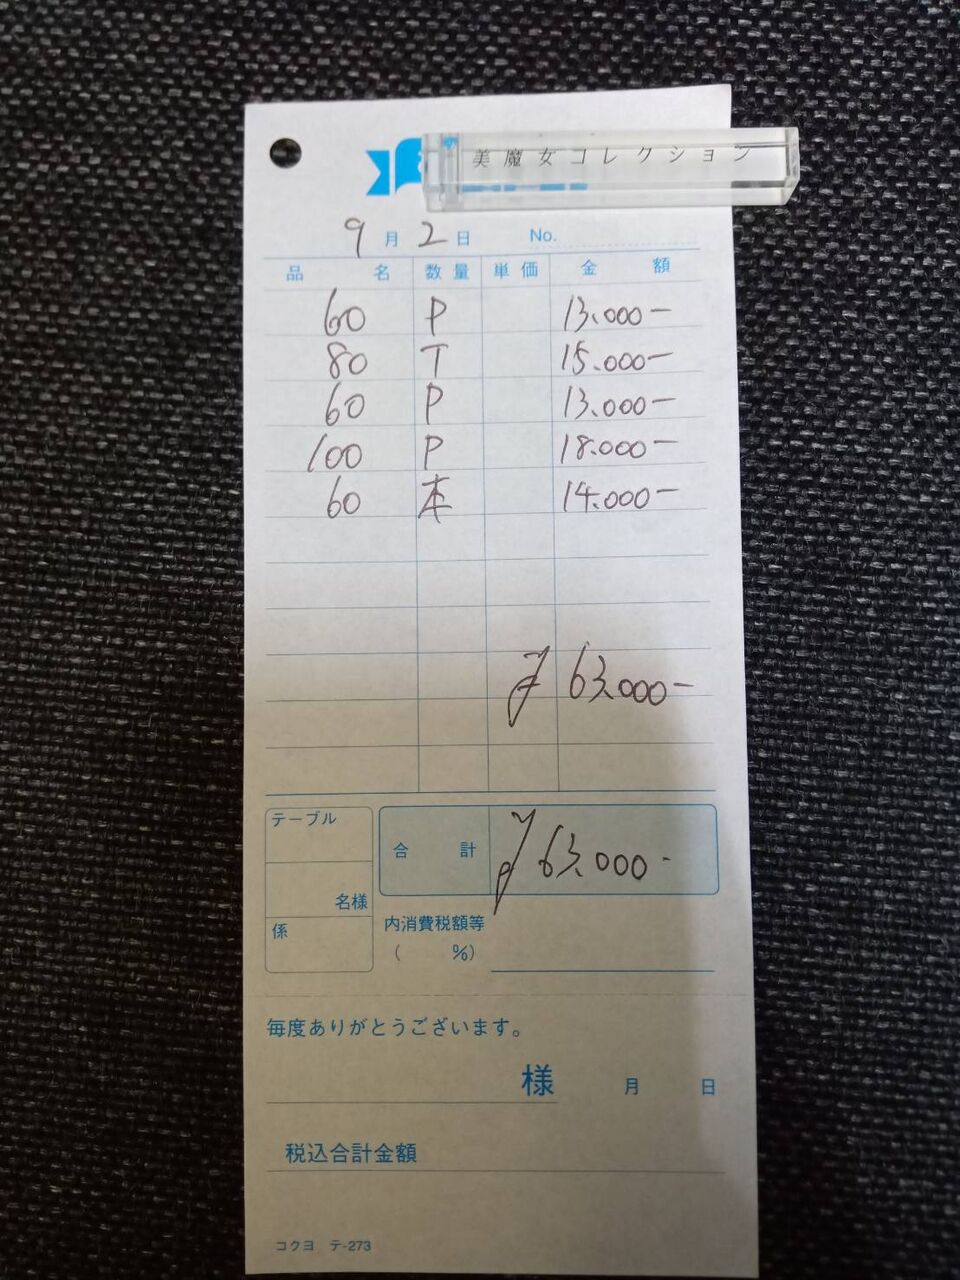 美魔女コレクション
9月2日 No.
品名 数量 単価 金額
60 P 13.000-
80 T 15.000-
60 P 13.000-
100 P 18.000-
60 本 14.000-
63.000-
テーブル
合計 63.000-
名様
係
内消費税額等
( %)
毎度ありがとうございます。
様 月 日
税込合計金額
コクヨ テ-273